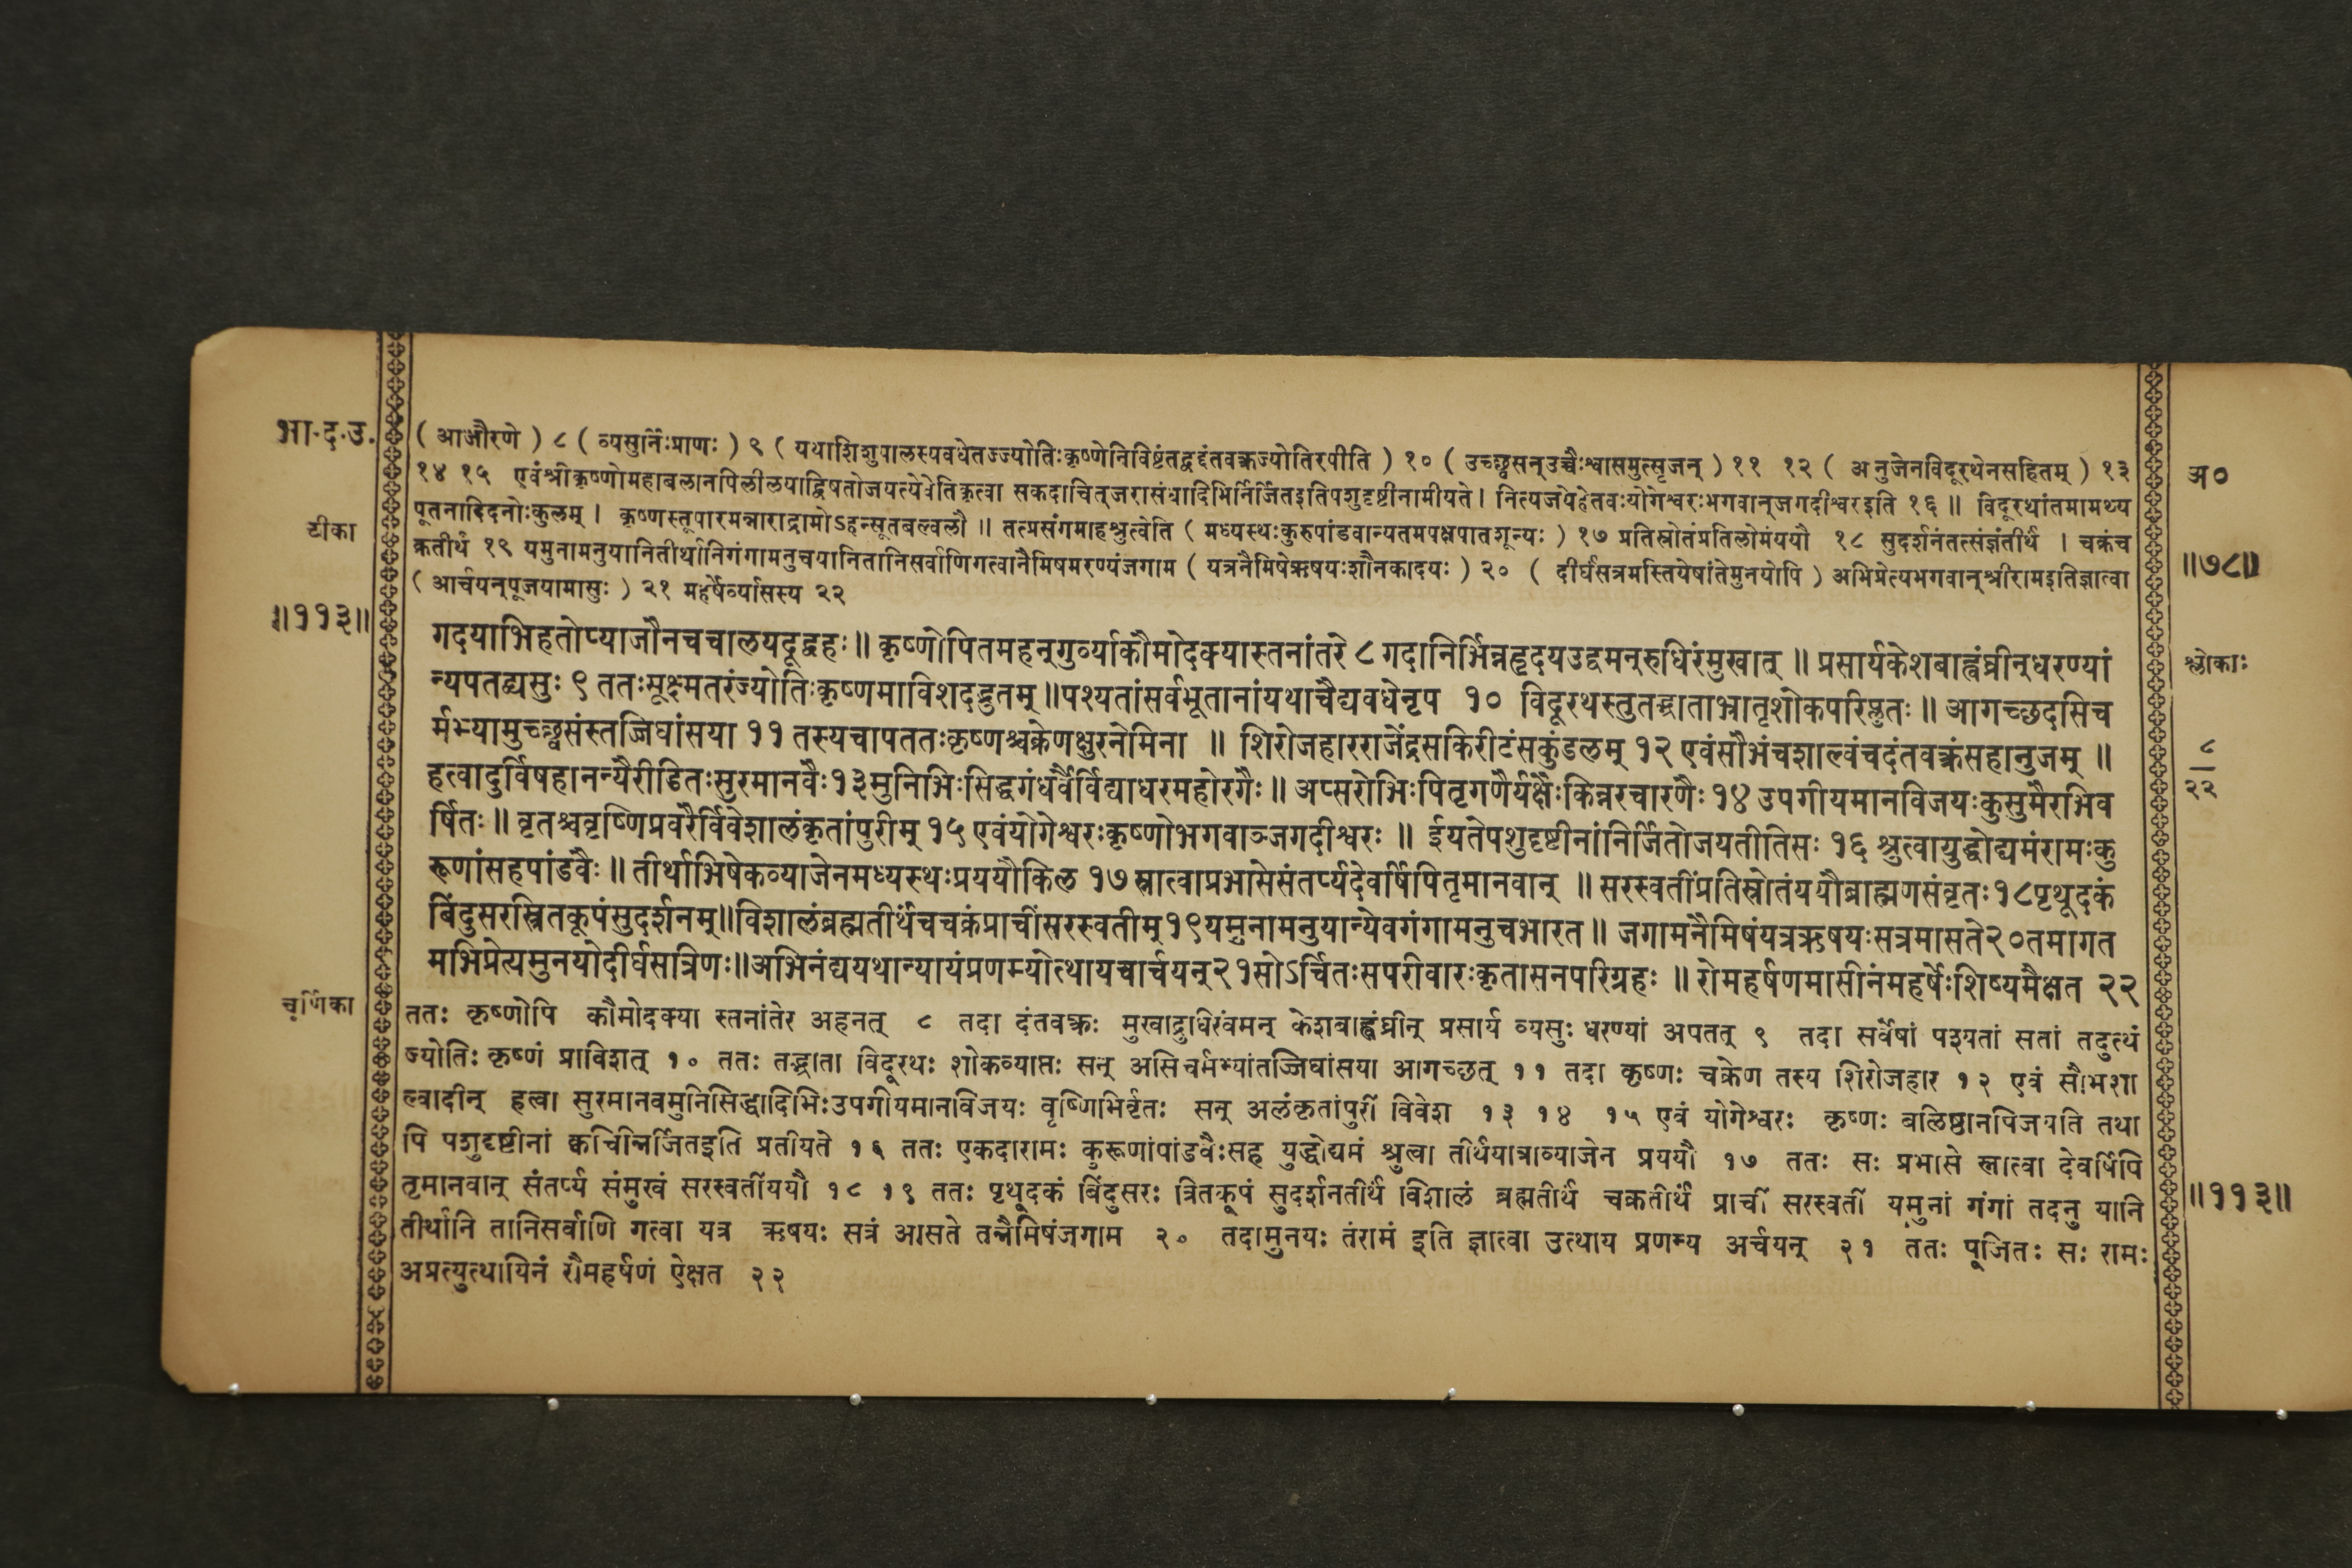 भा·द·उ.
( आऔरणे ) ८ ( व्यसुर्निःप्राणः ) ९ ( यथाशिशुपालस्यवधेतज्ज्योतिःकृष्णेनिविष्टंतद्वद्दंतवक्रज्योतिरपीति ) १० ( उच्छ्वसन्उच्चैःश्वासमुत्सृजन् ) ११ १२ ( अनुजेनविदूरथेनसहितम् ) १३
१४ १५ एवंश्रीकृष्णोमहाबलानपिलीलयाद्विषतोजयत्येवेतिकृत्वा सकदाचित्जरासंधादिभिर्निर्जितइतिपशुदृष्टीनामीयते । नित्यजयेहेतवःयोगेश्वरःभगवान्जगदीश्वरइति १६ ॥ विदूरथांतमामथ्य
पूतनादिदनोःकुलम् । कृष्णस्तूपारमन्नाराद्रामोऽहन्सूतबल्वलौ ॥ तत्प्रसंगमाहश्रुत्वेति ( मध्यस्थःकुरुपांडवान्यतमपक्षपातशून्यः ) १७ प्रतिस्रोतंप्रतिलोमंययौ १८ सुदर्शनंतत्संज्ञंतीर्थं । चक्रंच
क्रतीर्थं १९ यमुनामनुयानितीर्थानिगंगामनुचयानितानिसर्वाणिगत्वानैमिषमरण्यंजगाम ( यत्रनैमिषेऋषयःशौनकादयः ) २० ( दीर्घसत्रमस्तियेषांतेमुनयोपि ) अभिप्रेत्यभगवान्श्रीरामइतिज्ञात्वा
( आर्चयन्पूजयामासुः ) २१ महर्षेर्व्यासस्य २२
टीका
॥११३॥
अ०
॥७८॥
गदयाभिहतोप्याजौनचचालयदूद्वहः॥ कृष्णोपितमहन्गुर्व्याकौमोदक्यास्तनांतरे ८ गदानिर्भिन्नहृदयउद्वमन्रुधिरंमुखात् ॥ प्रसार्यकेशबाह्वंघ्रीन्धरण्यां
न्यपतद्व्यसुः ९ ततःसूक्ष्मतरंज्योतिःकृष्णमाविशदद्भुतम् ॥पश्यतांसर्वभूतानांयथाचैद्यवधेनृप १० विदूरथस्तुतद्भ्राताभ्रातृशोकपरिप्लुतः॥ आगच्छदसिच
र्मभ्यामुच्छ्वसंस्तजिघांसया ११ तस्यचापततःकृष्णश्चक्रेणक्षुरनेमिना ॥ शिरोजहारराजेंद्रसकिरीटंसकुंडलम् १२ एवंसौभंचशाल्वंचदंतवक्रंसहानुजम् ॥
हत्वादुर्विषहानन्यैरीडितःसुरमानवैः१३मुनिभिःसिद्धगंधर्वैर्विद्याधरमहोरगैः॥ अप्सरोभिःपितृगणैर्यक्षैःकिन्नरचारणैः१४ उपगीयमानविजयःकुसुमैरभिव
र्षितः॥ वृतश्चवृष्णिप्रवरैर्विवेशालंकृतांपुरीम् १५ एवंयोगेश्वरःकृष्णोभगवाञ्जगदीश्वरः ॥ ईयतेपशुदृष्टीनांनिर्जितोजयतीतिसः १६ श्रुत्वायुद्धोद्यमंरामःकु
रूणांसहपांडवैः॥ तीर्थाभिषेकव्याजेनमध्यस्थःप्रययौकिल १७ स्नात्वाप्रभासेसंतर्प्यदेवर्षिपितृमानवान् ॥ सरस्वतींप्रतिस्रोतंययौब्राह्मणसंवृतः१८पृथूदकं
बिंदुसरस्त्रितकूपंसुदर्शनम्॥विशालंब्रह्मतीर्थंचचक्रंप्राचींसरस्वतीम्१९यमुनामनुयान्येवगंगामनुचभारत॥ जगामनैमिषंयत्रऋषयःसत्रमासते२०तमागत
मभिप्रेत्यमुनयोदीर्घसत्रिणः॥अभिनंद्ययथान्यायंप्रणम्योत्थायचार्चयन्२१सोऽर्चितःसपरीवारःकृतासनपरिग्रहः ॥ रोमहर्षणमासीनंमहर्षेःशिष्यमैक्षत २२
श्लोकाः
८
२२
चूर्णिका
ततः कृष्णोपि कौमोदक्या स्तनांतेर अहनत् ८ तदा दंतवक्रः मुखाद्रुधिरंवमन् केशबाह्वंघ्रीन् प्रसार्य व्यसुः धरण्यां अपतत् ९ तदा सर्वेषां पश्यतां सतां तदुत्थं
ज्योतिः कृष्णं प्राविशत् १० ततः तद्भ्राता विदूरथः शोकव्याप्तः सन् असिचर्मभ्यांतज्जिघांसया आगच्छत् ११ तदा कृष्णः चक्रेण तस्य शिरोजहार १२ एवं सौभशा
ल्वादीन् हत्वा सुरमानवमुनिसिद्धादिभिःउपगीयमानविजयः वृष्णिभिर्वृतः सन् अलंकृतांपुरीं विवेश १३ १४ १५ एवं योगेश्वरः कृष्णः बलिष्ठानपिजयति तथा
पि पशुदृष्टीनां क्वचिन्निर्जितइति प्रतीयते १६ ततः एकदारामः कुरूणांपांडवैःसह युद्धोद्यमं श्रुत्वा तीर्थयात्राव्याजेन प्रययौ १७ ततः सः प्रभासे स्नात्वा देवर्षिपि
तृमानवान् संतर्प्य संमुखं सरस्वतींययौ १८ १९ ततः पृथूदकं बिंदुसरः त्रितकूपं सुदर्शनतीर्थं विशालं ब्रह्मतीर्थं चक्रतीर्थं प्राचीं सरस्वतीं यमुनां गंगां तदनु यानि
तीर्थानि तानिसर्वाणि गत्वा यत्र ऋषयः सत्रं आसते तन्नैमिषंजगाम २० तदामुनयः तंरामं इति ज्ञात्वा उत्थाय प्रणम्य अर्चयन् २१ ततः पूजितः सः रामः
अप्रत्युत्थायिनं रौमहर्षणं ऐक्षत २२
॥११३॥